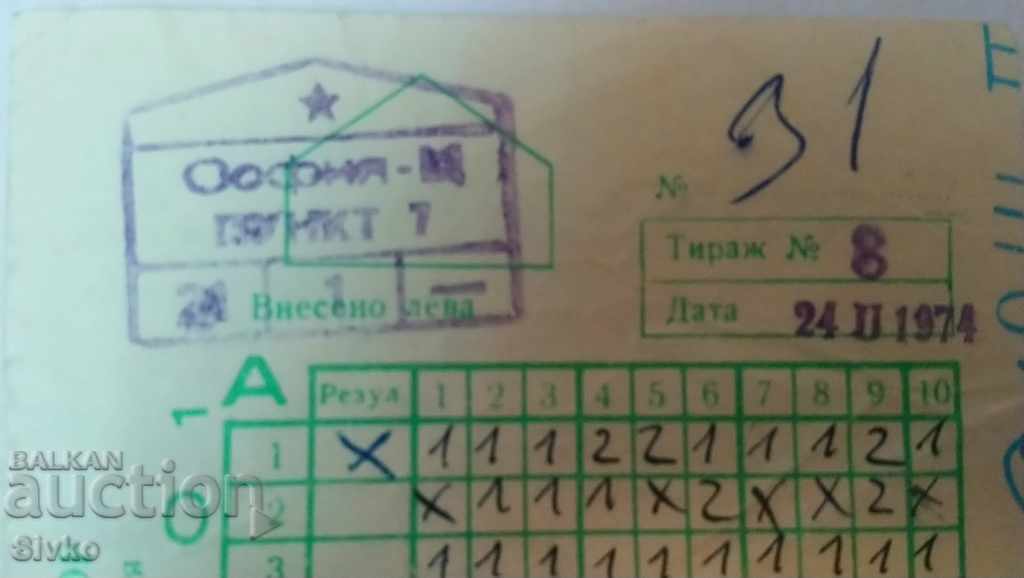 София - М
ПУНКТ 7
1 —
Внесено лева
№ 31
Тираж № 8
Дата 24 II 1974
А
1
Резул 1 2 3 4 5 6 7 8 9 10
1 X 1 1 1 2 2 1 1 1 2 1
2 X 1 1 1 X 2 X X 2 X
3 1 1 1 1 1 1 1 1 1 1
BALKAN
auction
Sivko